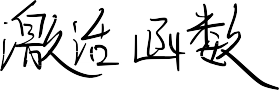 激活函数